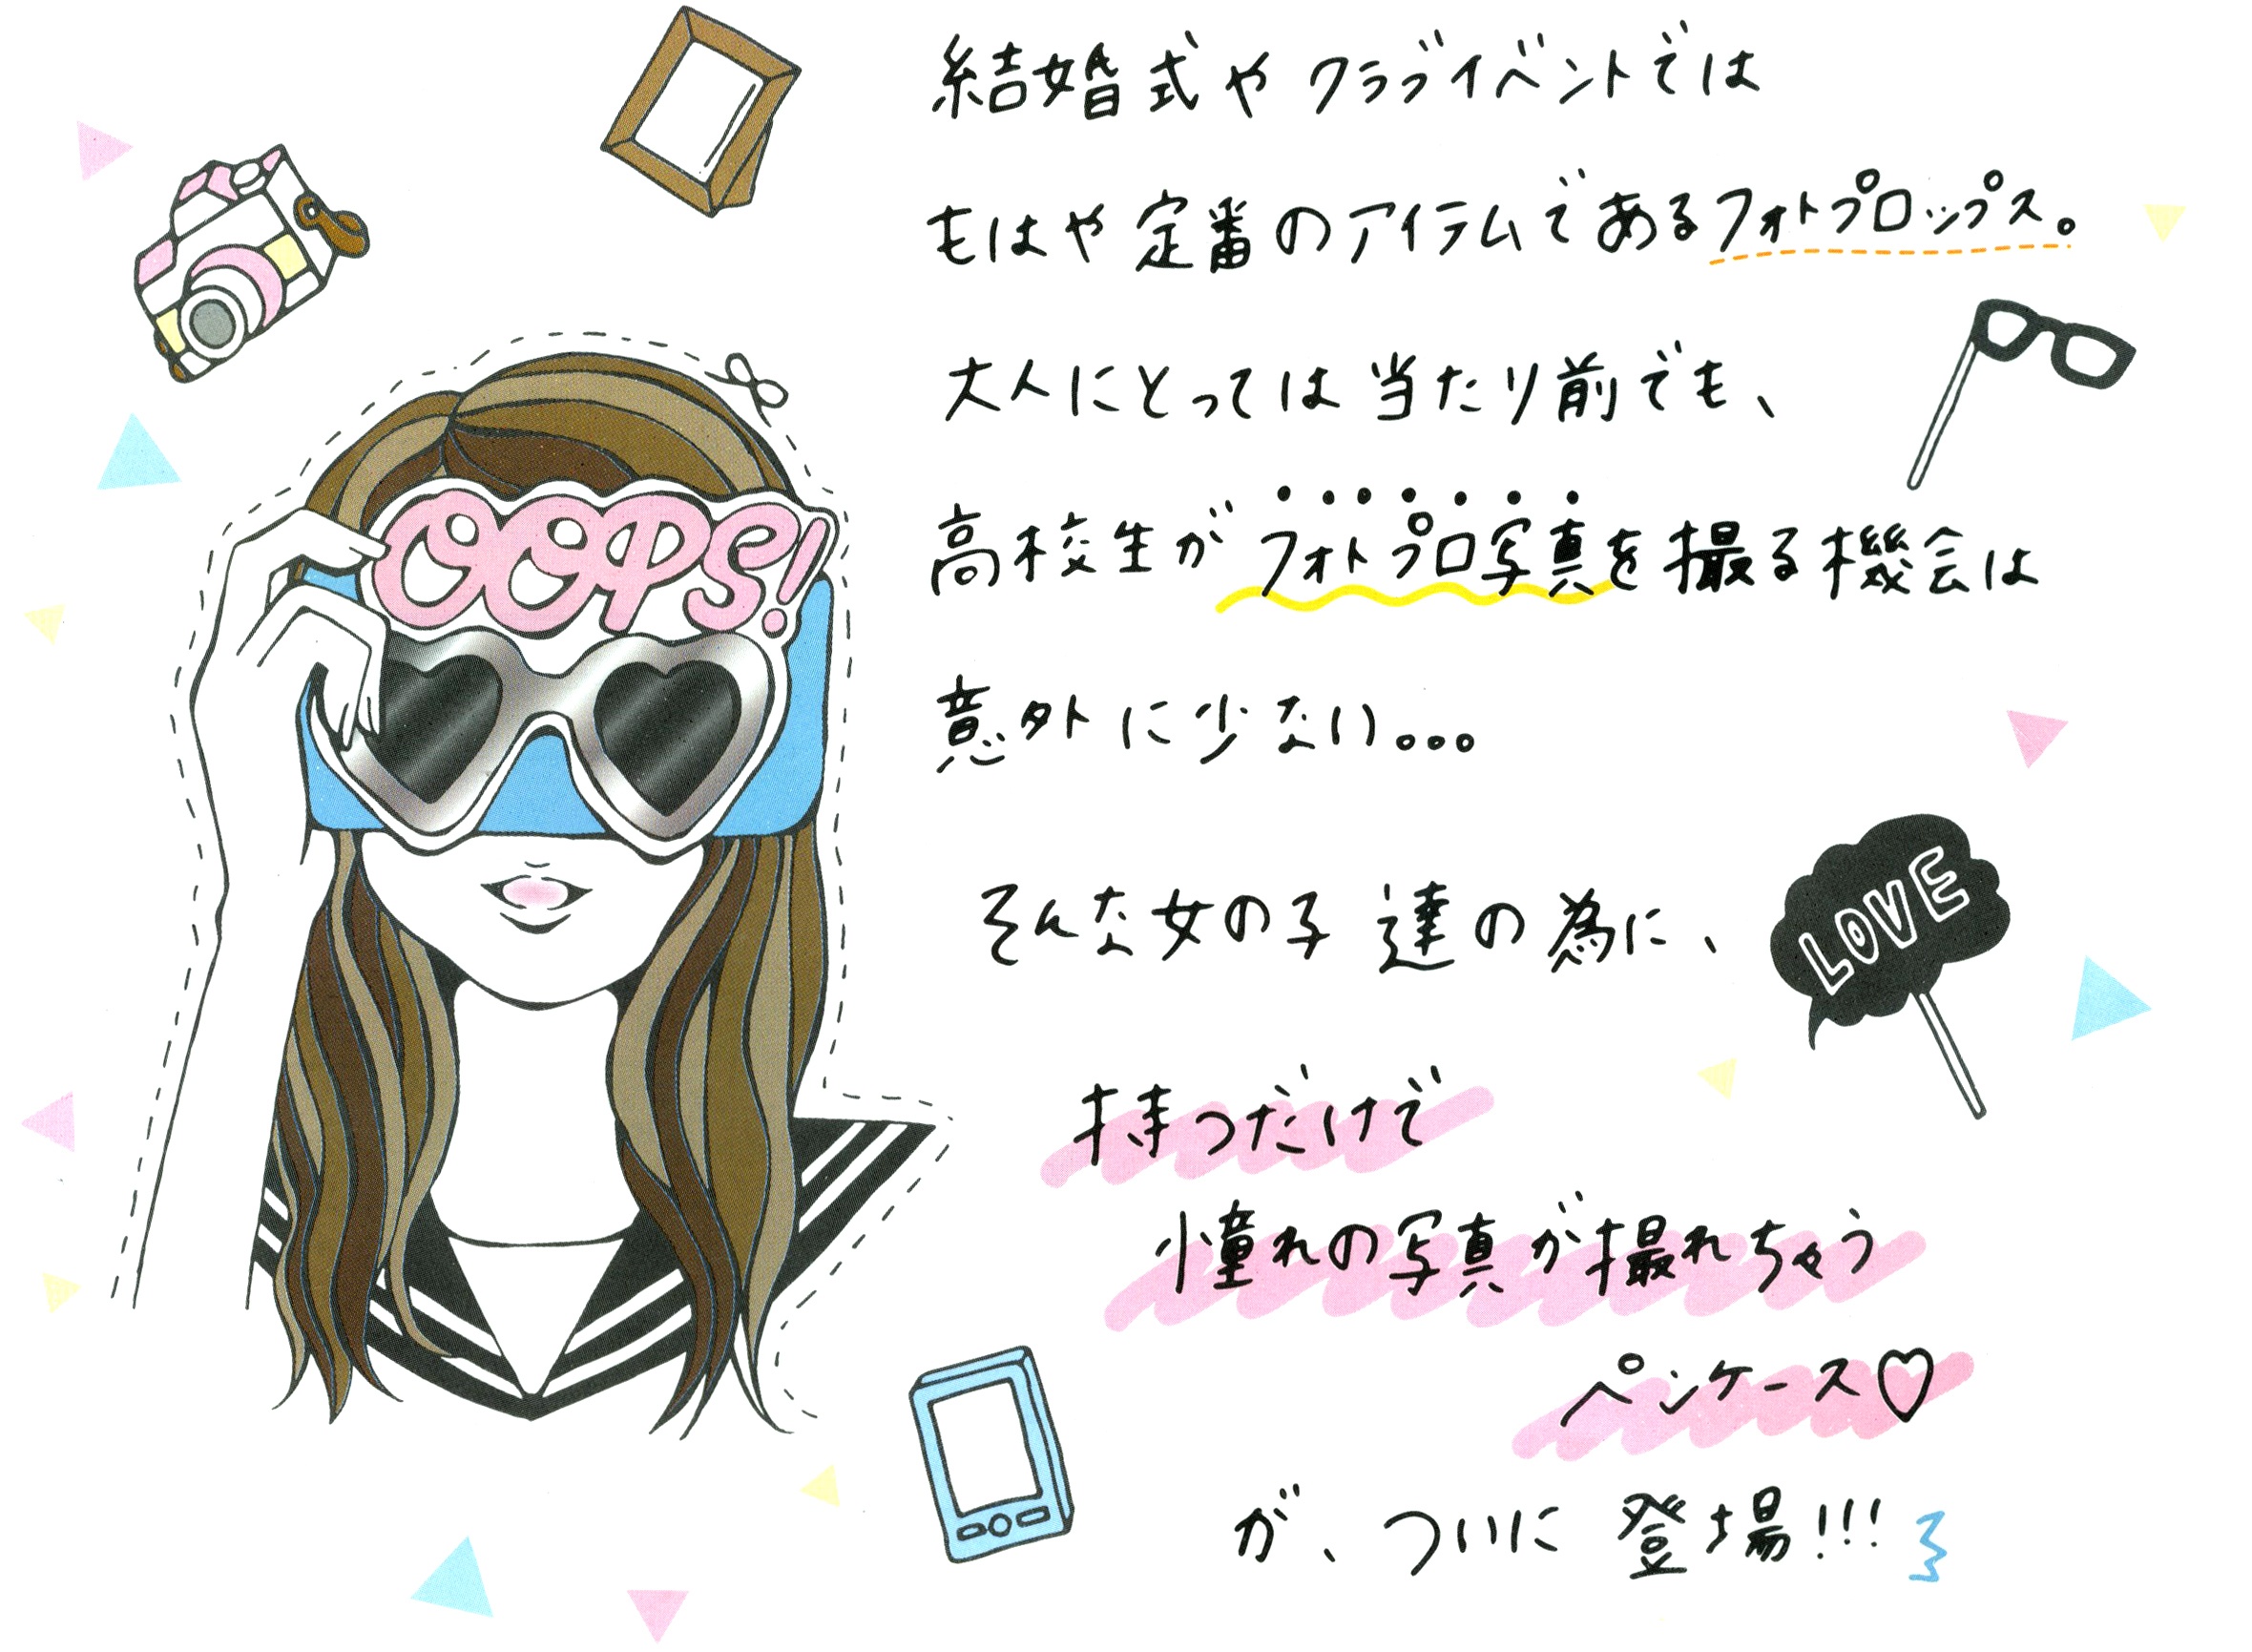 結婚式やクラブイベントでは
もはや定番のアイテムであるフォトプロップス。
大人にとっては当たり前でも、
高校生がフォトプロ写真を撮る機会は
意外に少ない...
そんな女の子達の為に、
持つだけで
憧れの写真が撮れちゃう
ペンケース♡
が、ついに登場!!!
OOPS!
LOVE